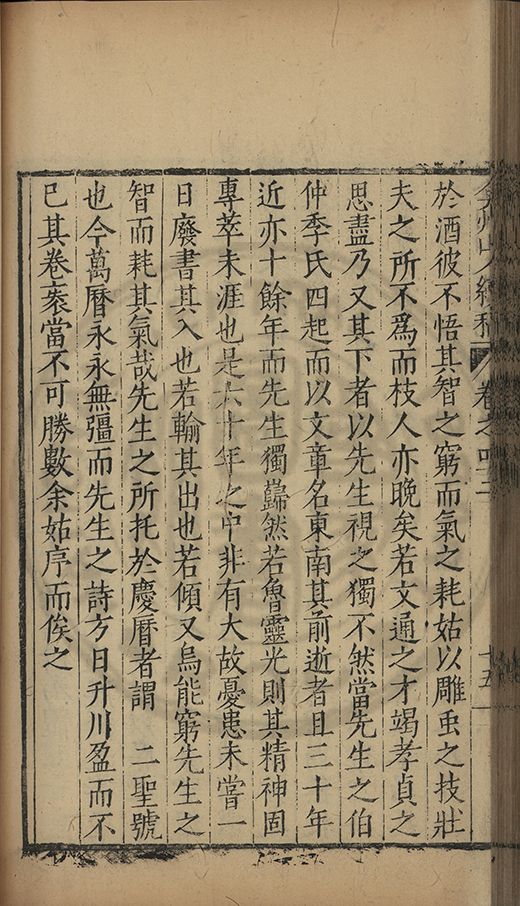 弇州山人續稿 卷之四 十五
於酒彼不悟其智之窮而氣之耗姑以雕虫之技壯
夫之所不爲而枝人亦晚矣若文通之才竭孝貞之
思盡乃又其下者以先生視之獨不然當先生之伯
仲季氏四起而以文章名東南其前逝者且三十年
近亦十餘年而先生獨巋然若魯靈光則其精神固
專萃未涯也是六十年之中非有大故憂患未嘗一
日廢書其入也若輸其出也若傾又烏能窮先生之
智而耗其氣哉先生之所托於慶曆者謂 二聖號
也今萬曆永永無彊而先生之詩方日升川盈而不
已其卷袠當不可勝數余姑序而俟之